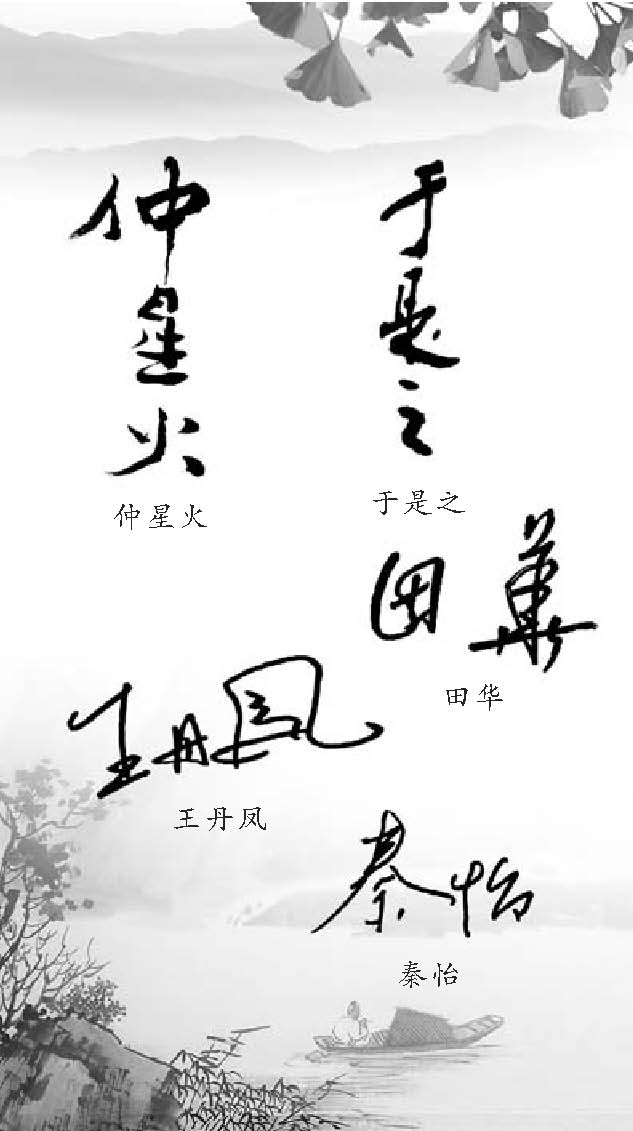 仲星火
仲星火
于是之
于是之
田華
田华
王丹凤
王丹凤
秦怡
秦怡